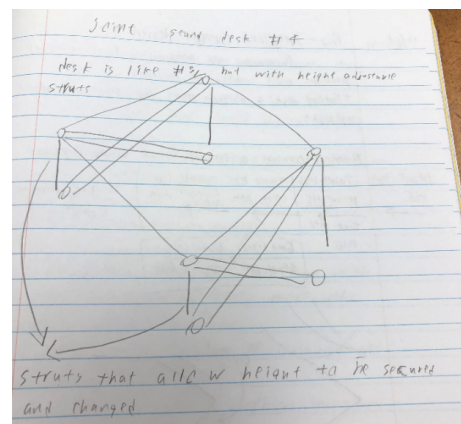 Joint stand desk #4
desk is like #3, but with height adjustable
struts
struts that allow height to be secured
and changed